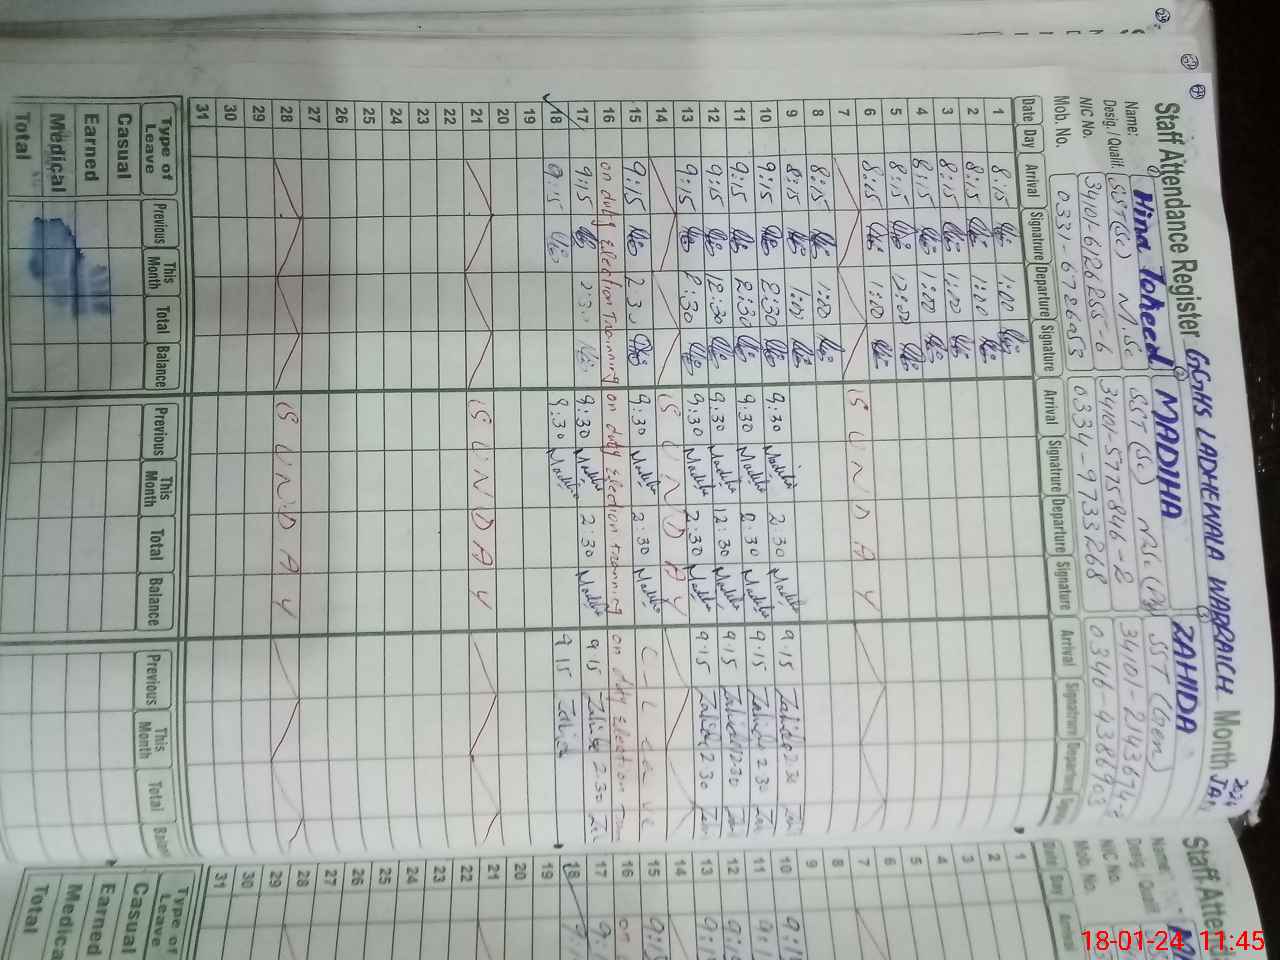 Staff Attendance Register GGHS LADHEWALA WARRAICH Month JAN 2024
Name: Hina Toheed MADIHA ZAHIDA
Desig. / Qualif. SST(Sc) M.Sc SST (Sc) SST (Gen)
NIC No. 34101-6126255-6 34101-5775846-2
Mob. No. 0331-6786053 0334-9733268 0346-4386903
Date Day Arrival Signatrure Departure Signature Arrival Signatrure Departure Signature Arrival Signatrure Departure
1 8:15 1:00
2 8:15 1:00
3 8:15 1:00
4 8:15 1:00
5 8:15 12:00
6 8:15 1:00
7 S U N D A Y
8 8:15 1:00
9 8:15 1:00
10 9:15 2:30 9:30 Madiha 2:30 Madiha 9:15 Zahida 2:30
11 9:15 2:30 9:30 Madiha 2:30 Madiha 9:15 Zahida 2:30
12 9:15 12:30 9:30 Madiha 12:30 Madiha 9:15 Zahida 12:30
13 9:15 2:30 9:30 Madiha 2:30 Madiha 9:15 Zahida 2:30
14 S U N D A Y
15 9:15 2:30 9:30 Madiha 2:30 Madiha C-Leave
16 on duty Election Trainning on duty Election training on duty Election
17 9:15 2:30 9:30 Madiha 2:30 Madiha 9:15 Zahida 2:30
18 9:15 9:30 Madiha 9:15 Zahida
19
20
21 S U N D A Y
22
23
24
25
26
27
28 S U N D A Y
29
30
31
Type of Leave Previous This Month Total Balance Previous This Month Total Balance Previous This Month Total
Casual
Earned
Medical
Total
Staff Atten
Name:
Desig. Qualif
NIC No.
Mob. No.
Date Day
1
2
3
4
5
6
7
8
9
10
11
12
13
14
15
16
17
18
19
20
21
22
23
24
25
26
27
28
29
30
31
Type of Leave
Casual
Earned
Medica
Total
18-01-24 11:45